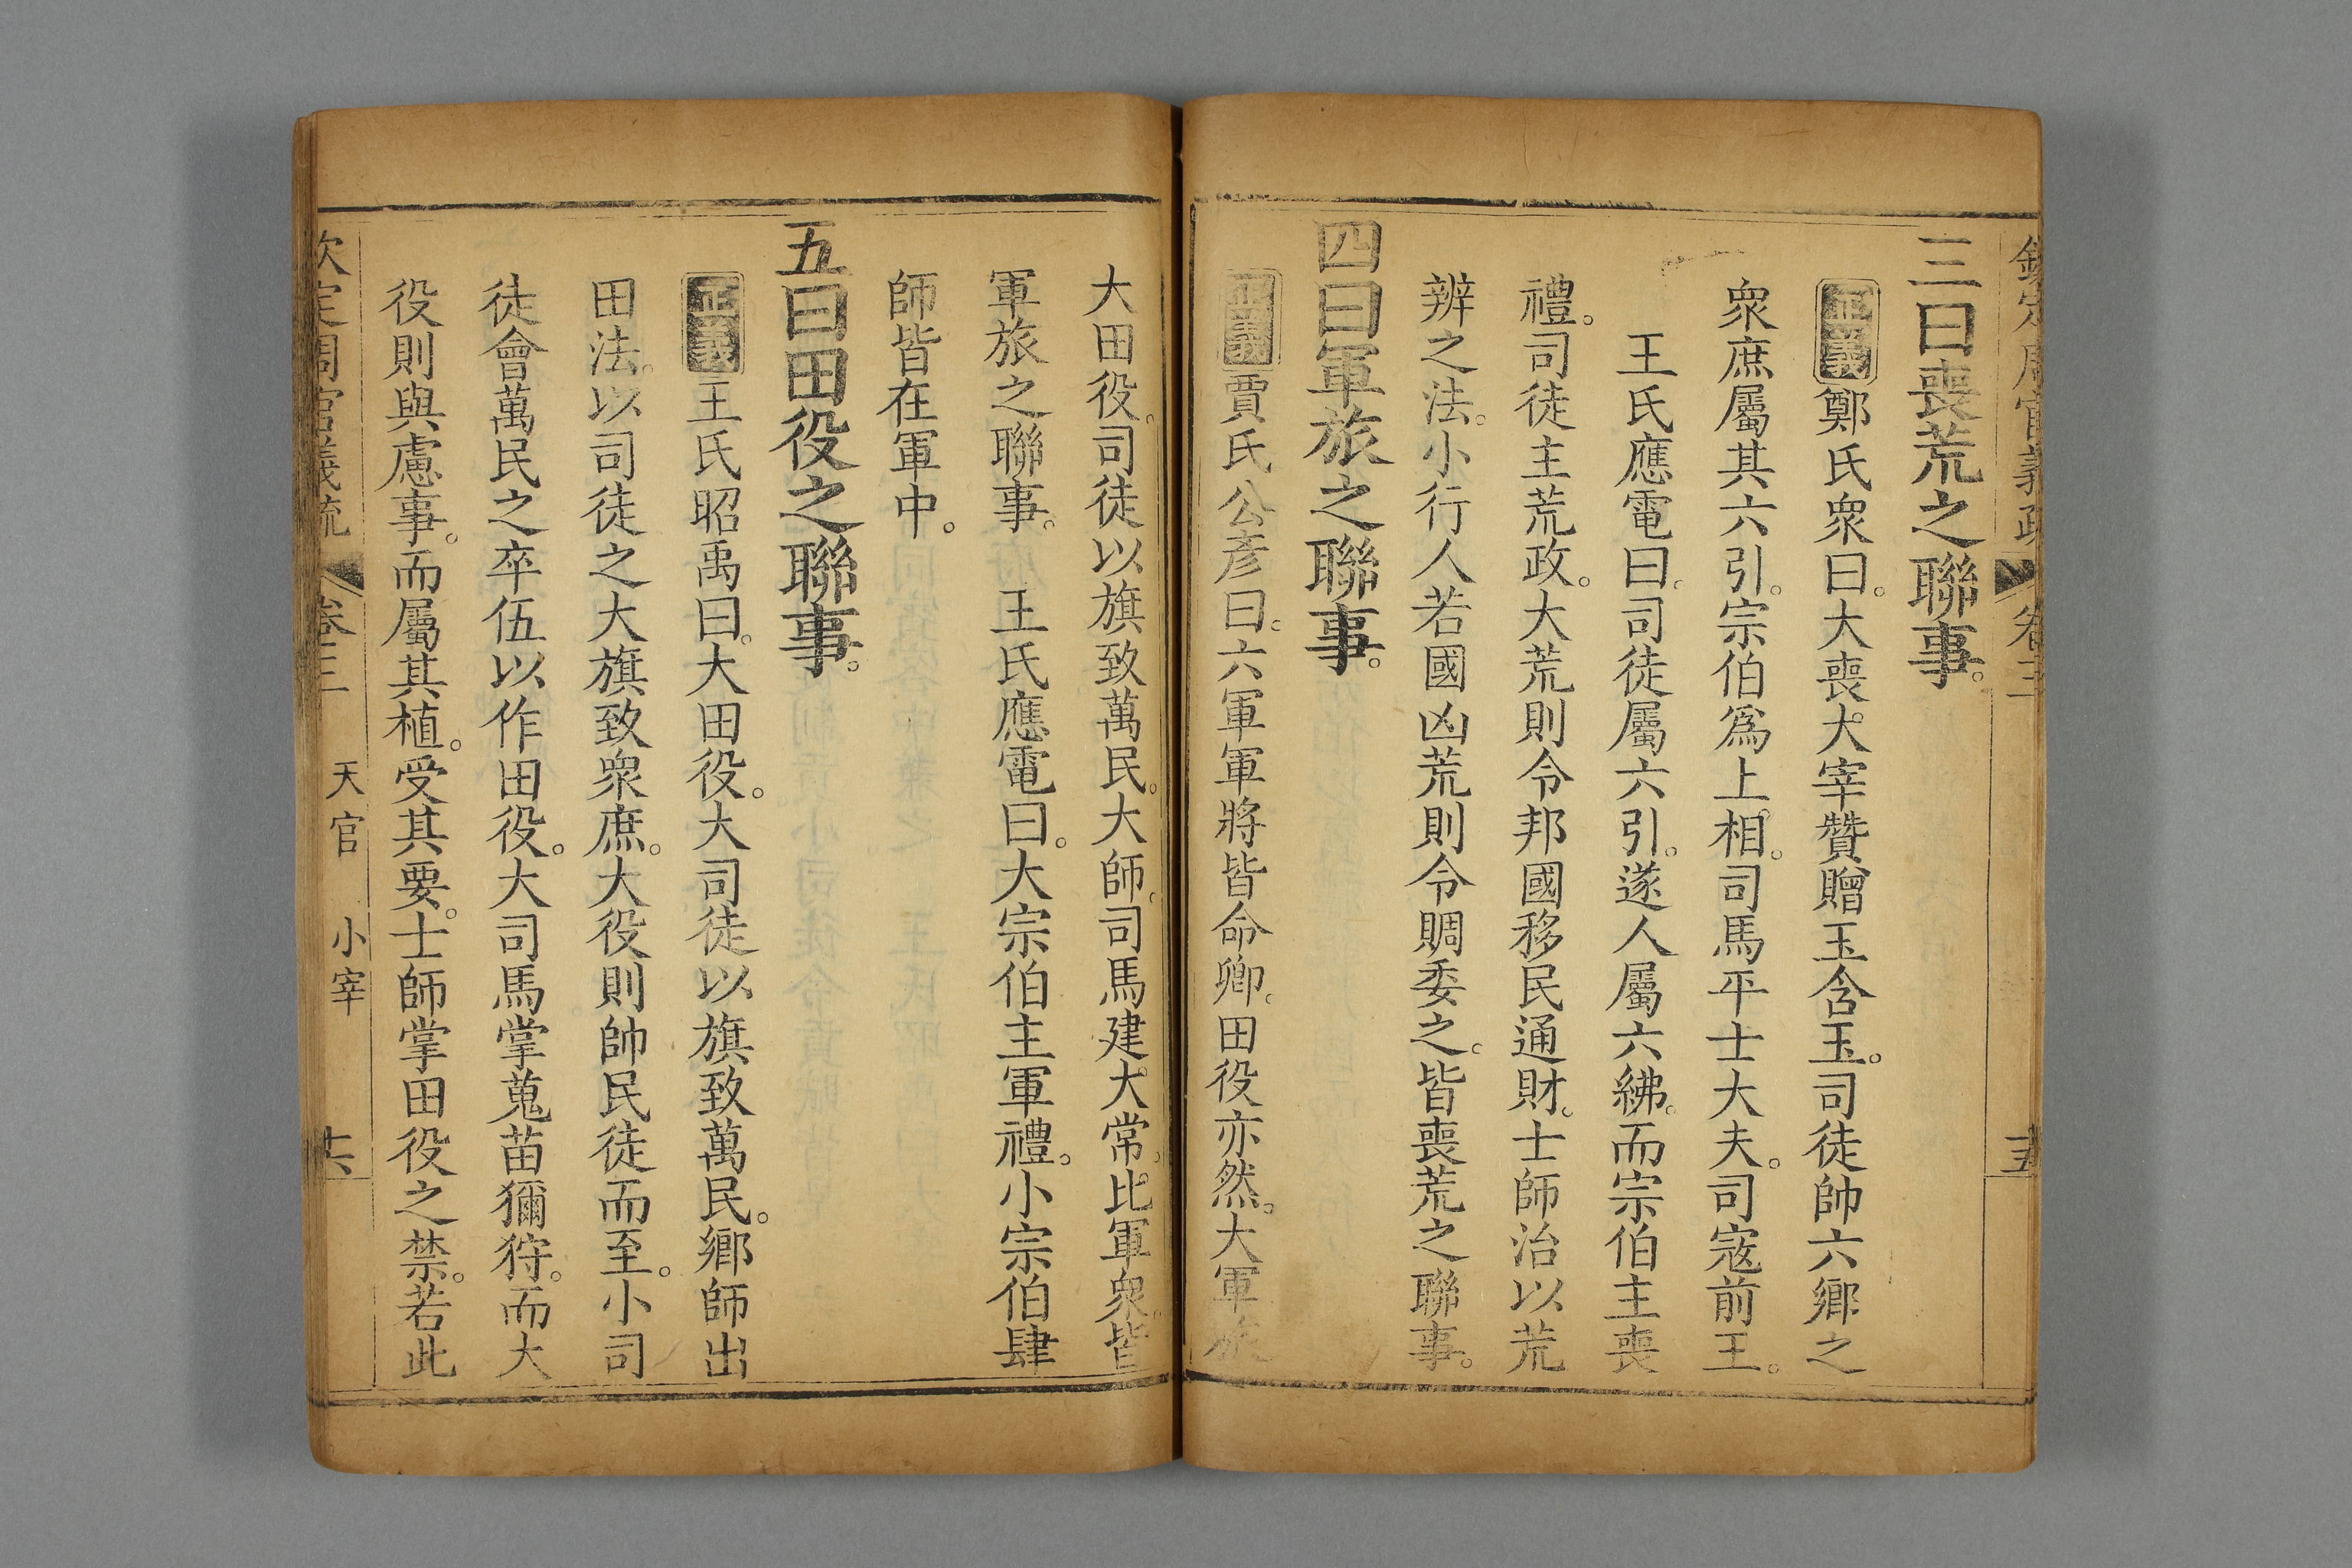 欽定周官義疏 卷三 十五
三曰喪荒之聯事。
正義 鄭氏衆曰。大喪大宰贊贈玉含玉。司徒帥六鄉之
衆庶屬其六引。宗伯爲上相。司馬平士大夫。司寇前王。
王氏應電曰。司徒屬六引。遂人屬六紼。而宗伯主喪
禮。司徒主荒政。大荒則令邦國移民通財。士師治以荒
辨之法。小行人若國凶荒則令賙委之。皆喪荒之聯事。
四曰軍旅之聯事。
正義 賈氏公彥曰。六軍軍將皆命卿。田役亦然。大軍旅
大田役。司徒以旗致萬民。大師。司馬建大常。比軍衆。皆
軍旅之聯事。 王氏應電曰。大宗伯主軍禮。小宗伯肆
師皆在軍中。
五曰田役之聯事。
正義 王氏昭禹曰。大田役。大司徒以旗致萬民。鄉師出
田法。以司徒之大旗致衆庶。大役則帥民徒而至。小司
徒會萬民之卒伍以作田役。大司馬掌蒐苗獮狩。而大
役則與慮事。而屬其植。受其要。士師掌田役之禁。若此
欽定周官義疏 卷三 天官 小宰 十六